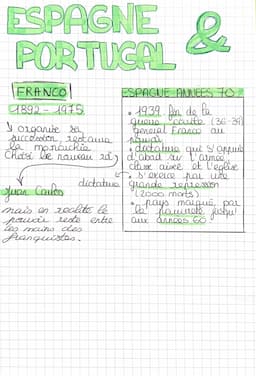 ESPAGNE &
PORTUGAL
FRANCO
1892 - 1975
organise sa
succession, restaure
la monarchie
Choisi le nouveau roi
Juan Carlos
mais en réalité le
pouvoir reste entre
les mains des
franquistes.
ESPAGNE ANNEES 70
• 1939 fin de la
guerre civile (36-39)
général Franco au
pouvoir
• dictature qui s'appuie
d'abord sur l'armée,
classe aisée et l'église
• s'exerce par une
grande repression
(2000 morts)
• pays marqué par
la pauvreté jusqu'
aux années 60
dictature